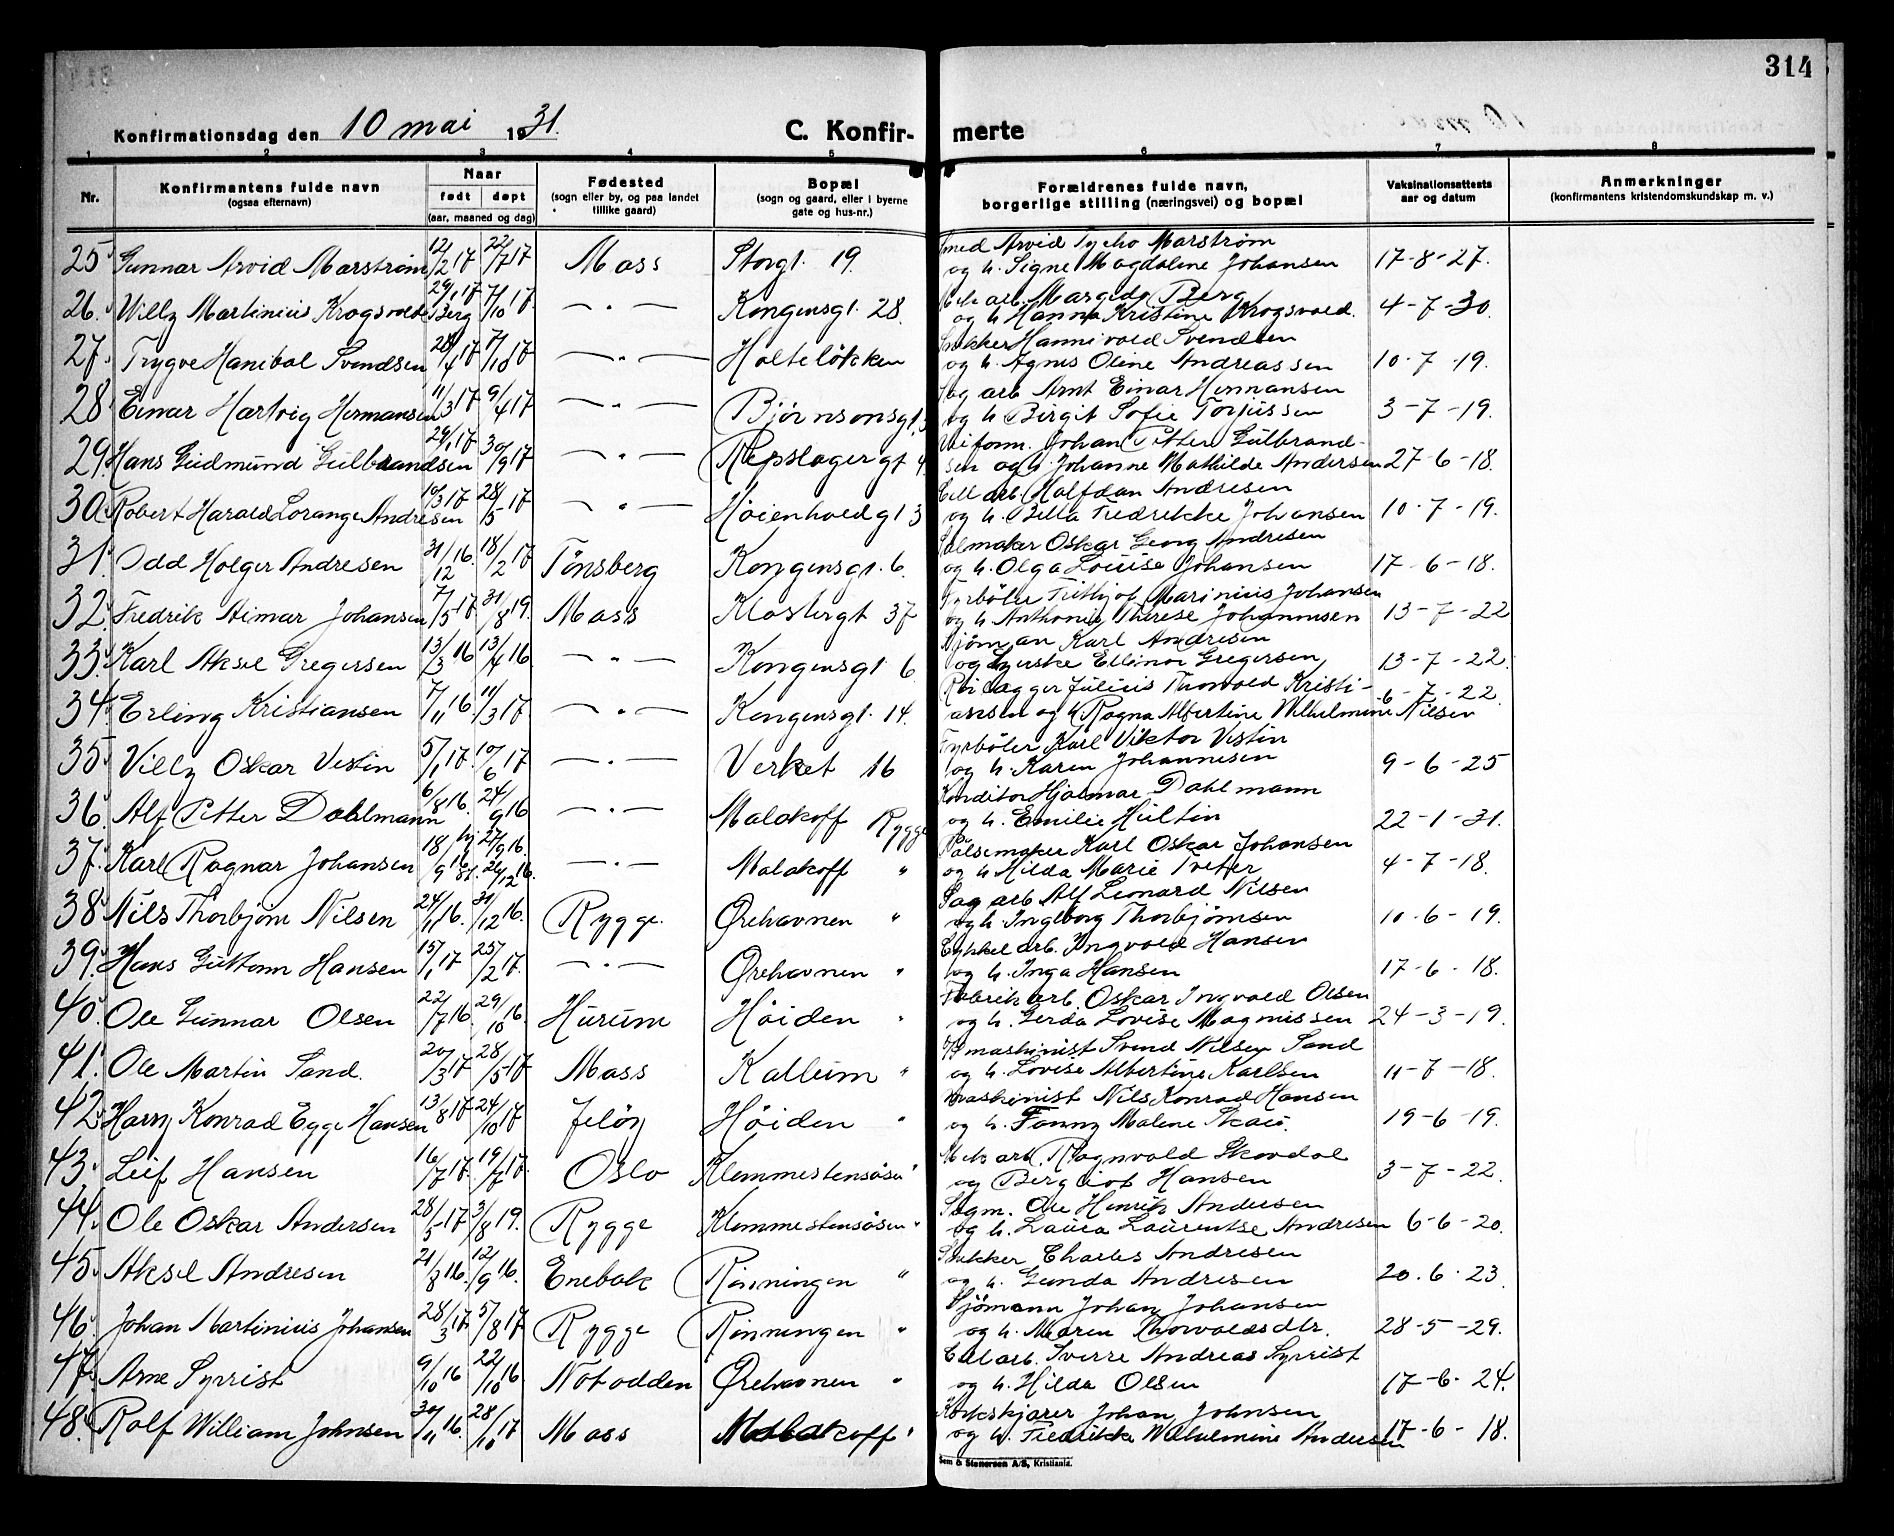 314
Konfirmationsdag den 10 mai 1931.
C. Konfir- merte
1 2 3 4 5 6 7 8
Nr. Konfirmantens fulde navn (ogsaa efternavn) Naar født døpt (aar, maaned og dag) Fødested (sogn eller by, og paa landet tillike gaard) Bopæl (sogn og gaard, eller i byerne gate og hus-nr.) Forældrenes fulde navn, borgerlige stilling (næringsvei) og bopæl Vaksinationsattests aar og datum Anmerkninger (konfirmantens kristendomskundskap m. v.)
25. Gunnar Arvid Marstrøm 12/2 17 22/7 17 Moss Storgt. 19. Smed Arvid Tycho Marstrøm
og h. Signe Magdalene Johansen 17-8-27.
26. Willy Martinius Krogsvold Berg 29/1 17 7/10 17. — " — Kongensgt. 28. arb. Berg
og h Hanna Kristine Krogsvold. 4-7-30.
27. Trygve Hanibal Svendsen 28/4 17 7/10 17 — " — Holteløkken Snekker Hannivald Svendsen
og h. Agnes Oline Andreassen 10-7-19.
28. Einar Hartvig Hermansen 11/3 17 9/4 17 — " — Bjørnsonsgt. Sag arb Arnt Einar Hermansen
og h Birgit Sofie Torjussen 3-7-19.
29. Hans Gudmund Gulbrandsen 29/1 17 30/9 17 — " — Repslagergt 4 Veiform. Johan Petter Gulbrand-
sen og h Johanne Mathilde Andersen 27-6-18.
30. Robert Harald Lorange Andresen 10/3 17 28/5 17 — " — Høienholdgt 3 Cell arb. Halfdan Andresen
og h. Bella Fredrikke Johansen 10-7-19.
31. Odd Holger Andresen 31/12 16. 18/2 17 Tønsberg Kongensgt. 6. Salmaker Oskar Georg Andresen
og h. Olga Louise Johansen 17-6-18.
32. Fredrik Aimar Johansen 7/5 17 31/8 19. Moss Klostergt 37 Fyrbøter Frithjof Marinius Johansen
og h Anthonie Therese Johannesen 13-7-22
33. Karl Aksel Gregersen 13/3 16 13/4 16 — " — Kongensgt 6. Sjøman Karl Andresen
og Ellinor Gregersen 13-7-22.
34. Erling Kristiansen 7/11 16. 11/3 17. — " — Kongensgt. 14. Rørlægger Julius Thorvald Kristi-
ansen og h Ragna Albertine Wilhelmine Nilsen 6-7-22.
35. Villy Oskar Vestin 5/1 17. 10/6 17 — " — Verket 16 Fyrbøter Karl Viktor Vestin
og h. Karen Johannesen 9-6-25
36. Alf Petter Dahlmann 6/8 16. 24/9 16 — " — Malakoff Rygge Konditor Hjalmar Dahlmann
og h. Emilie Hultin 22-1-31.
37. Karl Ragnar Johansen 18/9 16 hj. 27/9 16. st. 24/12 16. — " — Malakoff " Pølsemaker Karl Oskar Johansen
og h Hilda Marie Tveter 4-7-18.
38. Nils Thorbjørn Nilsen 24/11 16. 31/12 16. Rygge. Ørehavnen " Sag arb Alf Leonard Nilsen
og h. Ingeborg Thorbjørnsen 10-6-19.
39. Hans Guttorm Hansen 15/1 17 25/2 17. — " — Ørehavnen " Cykkel arb. Ingvald Hansen
og h. Inga Hansen 17-6-18.
40. Ole Gunnar Olsen 22/7 16. 29/10 16. Hurum Høiden " Fabrik arb. Oskar Ingvald Olsen
og h. Gerda Lovise Magnussen 24-3-19.
41. Ole Martin Sand. 20/3 17 28/5 17 Moss Kallum " maskinist Svend Nilsen Sand
og h. Lovise Albertine Karlsen 11-7-18.
42. Harry Konrad Egge Hansen 13/8 17 24/10 17 Jeløy Høiden " Maskinist Nils Konrad Hansen
og h. Fanny Malene Skau. 19-6-19.
43. Leif Hansen 16/7 17. 19/7 17 Oslo Klommestensåsen " Mek arb. Ragnvald Skovdal
og Bergliot Hansen 3-7-22.
44. Ole Oskar Andersen 28/5 17. 3/8 19. Rygge Klommestensåsen " Sagm. Ole Henrik Andersen
og h. Laura Laurentse Andresen 6-6-20.
45. Aksel Andresen 21/8 16. 12/9 16. Enebak Rønningen " Snekker Charles Andresen
og h. Gunda Andresen 20.6.23
46. Johan Martinius Johansen 28/3 17. 5/8 17 Rygge Rønningen " Sjømann Johan Johansen
og h. Maren Thorvaldsdtr. 28-5-29.
47. Arne Syrrist 9/10 16 22/10 16 Notodden Ørehavnen " Cel arb. Sverre Andreas Syrrist
og h. Hilda Olsen 17-6-24.
48. Rolf William Johnsen 30/11 16. 28/10 17 Moss Malakoff " Korkskjærer Johan Johnsen
og h. Fredrikke Wilhelmine Andersen 17-6-18.
Sem & Stenersen A/S, Kristiania.